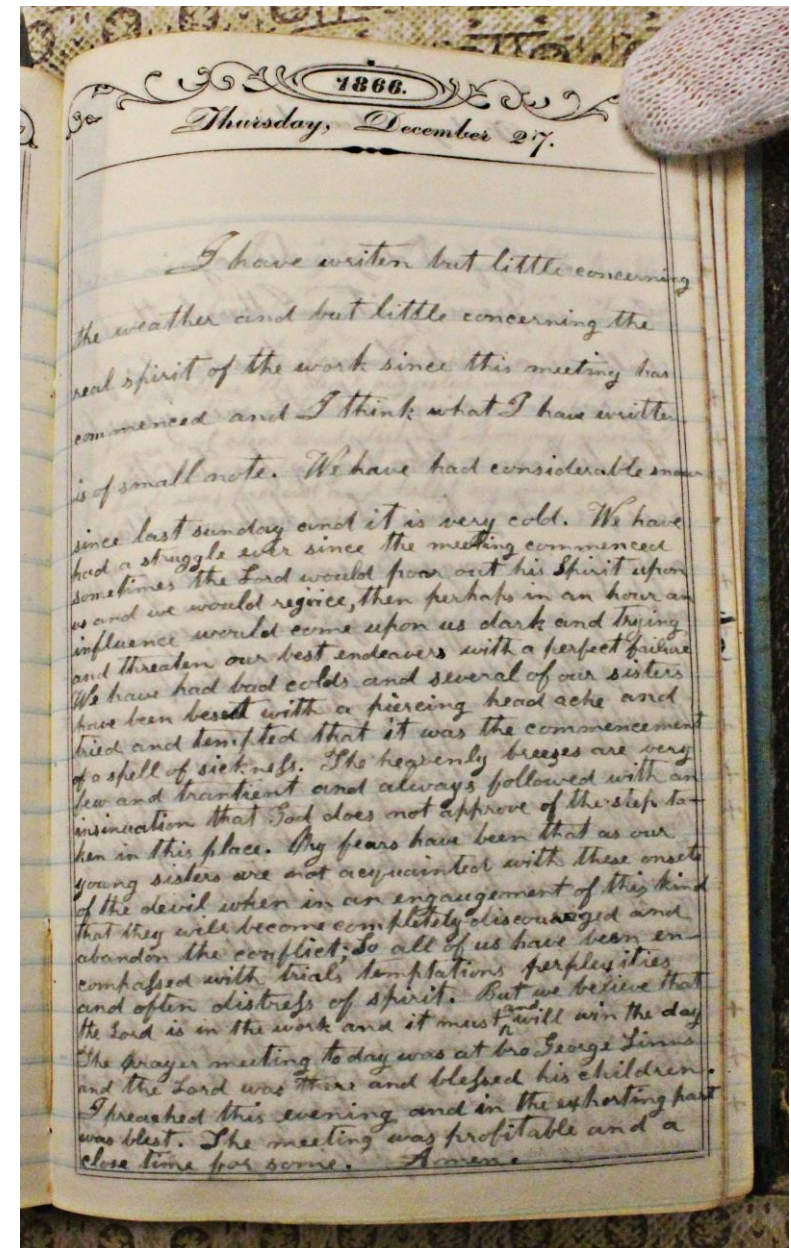 1866.
Thursday, December 27.
I have writen but little concerning
the weather and but little concerning the
real spirit of the work since this meeting has
commenced and I think what I have written
is of small note. We have had considerable snow
since last sunday and it is very cold. We have
had a struggle ever since the meeting commenced
sometimes the Lord would poar out his Spirit upon
us and we would rejoice, then perhaps in an hour an
influence would come upon us dark and trying
and threaten our best endeavers with a perfect failure
We have had bad colds and several of our sisters
have been besett with a piercing head ache and
tried and tempted that it was the commencement
of a spell of sickness. The heavenly breezes are very
few and trantient and always followed with an
insinuation that God does not approve of the step ta-
ken in this place. My fears have been that as our
young sisters are not acquainted with these onsets
of the devil when in an engaugement of this kind
that they will become completely discouraged and
abandon the conflict; So all of us have been en-
compassed with trials temptations perplexities
and often distress of spirit. But we believe that
the Lord is in the work and it must and will win the day
The prayer meeting today was at bro George Linns
and the Lord was there and blessed his children.
I preached this evening and in the exhorting part
was blest. The meeting was profitable and a
close time for some. Amen.